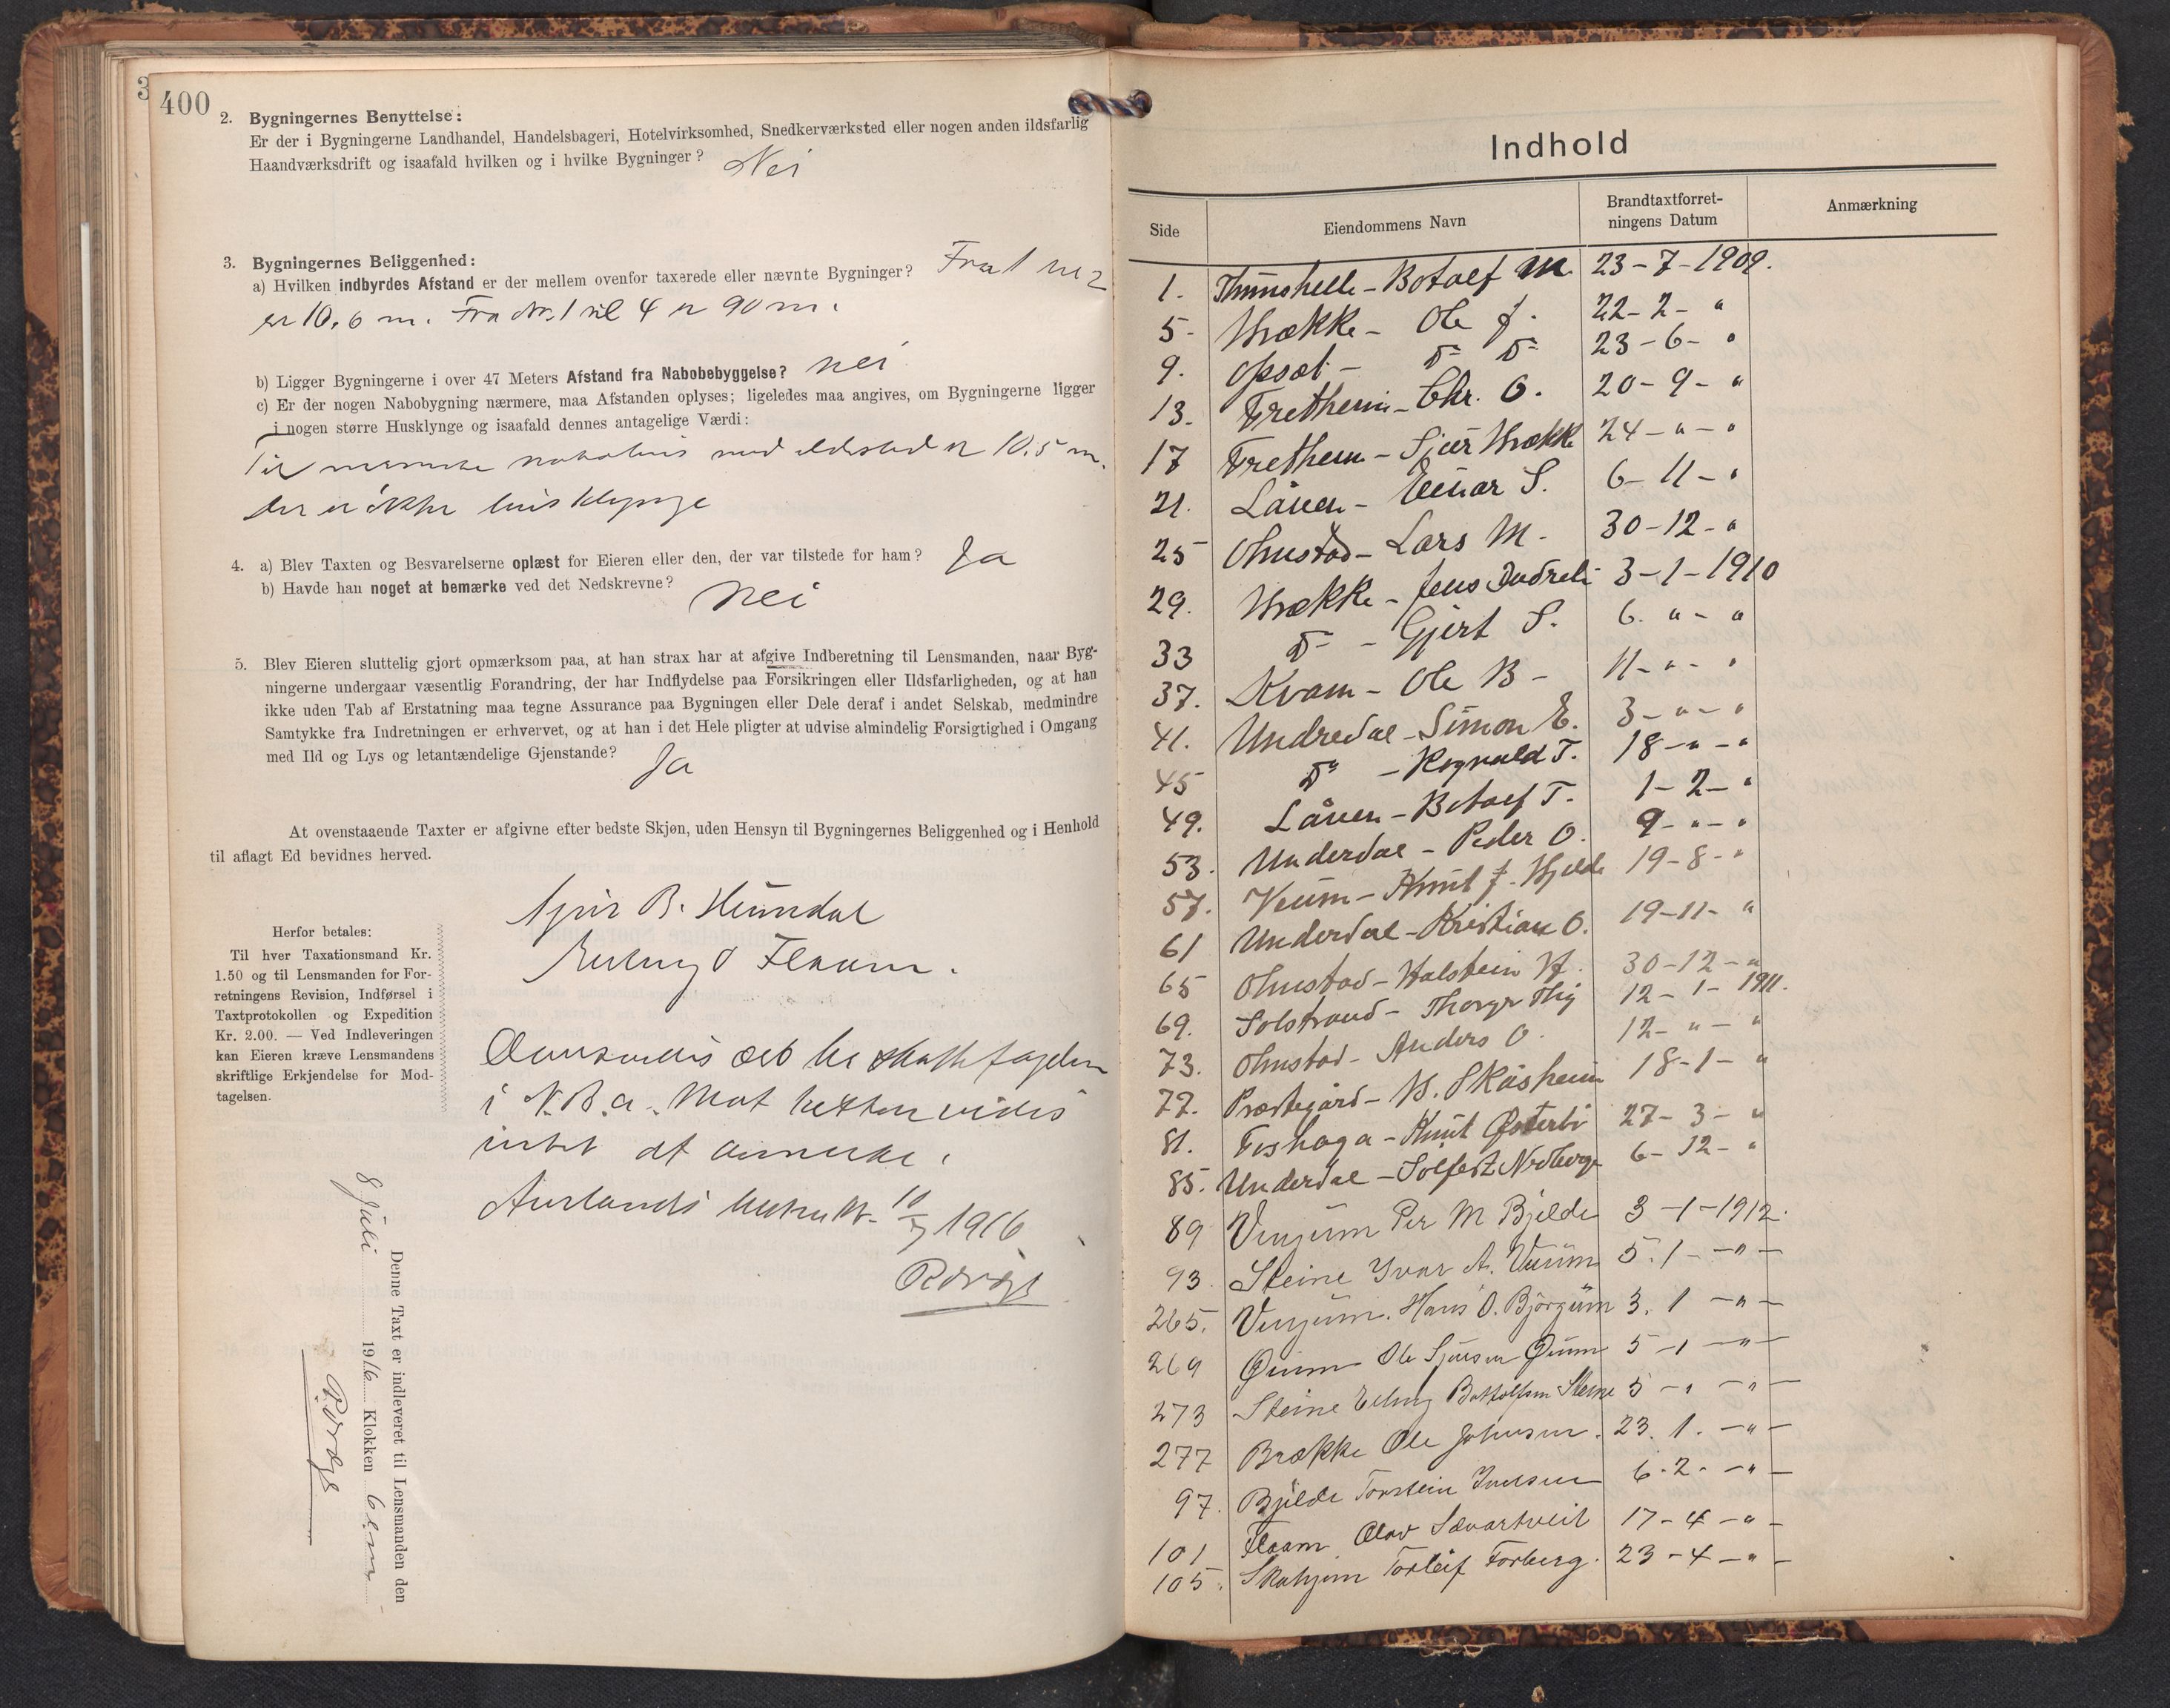 3
400
2. Bygningernes Benyttelse:
Er der i Bygningerne Landhandel, Handelsbageri, Hotelvirksomhed, Snedkerværksted eller nogen anden ildsfarlig
Haandværksdrift og isaafald hvilken og i hvilke Bygninger? Nei
3. Bygningernes Beliggenhed:
a) Hvilken indbyrdes Afstand er der mellem ovenfor taxerede eller nævnte Bygninger? Fra 1 til 2
er 10,6 m. Fra No. 1 til 4 er 90 m.
b) Ligger Bygningerne i over 47 Meters Afstand fra Nabobebyggelse? nei
c) Er der nogen Nabobygning nærmere, maa Afstanden oplyses; ligeledes maa angives, om Bygningerne ligger
i nogen større Husklynge og isaafald dennes antagelige Værdi:
Til nærmeste nabohus med ildsted er 10.5 m.
der er ikke husklynge
4. a) Blev Taxten og Besvarelserne oplæst for Eieren eller den, der var tilstede for ham? Ja
b) Havde han noget at bemærke ved det Nedskrevne? Nei
5. Blev Eieren sluttelig gjort opmærksom paa, at han strax har at afgive Indberetning til Lensmanden, naar Byg-
ningerne undergaar væsentlig Forandring, der har Indflydelse paa Forsikringen eller Ildsfarligheden, og at han
ikke uden Tab af Erstatning maa tegne Assurance paa Bygningen eller Dele deraf i andet Selskab, medmindre
Samtykke fra Indretningen er erhvervet, og at han i det Hele pligter at udvise almindelig Forsigtighed i Omgang
med Ild og Lys og letantændelige Gjenstande? Ja
At ovenstaaende Taxter er afgivne efter bedste Skjøn, uden Hensyn til Bygningernes Beliggenhed og i Henhold
til aflagt Ed bevidnes herved.
B. Heimdal
Erling O Flaam.
Herfor betales:
Til hver Taxationsmand Kr.
1.50 og til Lensmanden for For-
retningens Revision, Indførsel i
Taxtprotokollen og Expedition
Kr. 2.00. — Ved Indleveringen
kan Eieren kræve Lensmandens
skriftlige Erkjendelse for Mod-
tagelsen.
i N. B. a. Mot takten vides
intet at anmerke.
Aurlands 10/7 1916
Denne Taxt er indleveret til Lensmanden den
8 Juli 1916 Klokken 6 em
Indhold
Side Eiendommens Navn Brandtaxtforret-
ningens Datum Anmærkning
1. Thunshelle - Botolf M. 23-7-1909.
5- Brække - Ole J. 22-2- "
9. Opsæt - D= D= 23-6- "
13. Fretheim - Chr. O. 20-9- "
17 Fretheim - Sjur Brække 24-"-"
21. Låven - Einar S. 6-11-"
25 Ohnstad - Lars M. 30-12-"
29. Brække - Jens Indreli 3-1-1910
33 D= - Gjert S. 6. "-"
37. Kvam - Ole B - 11-"-"
41. Undredal - Simon E. 3-"-"
45 D= - Rognald T. 18-"-"
49. Låven - Botolf T. 1-2-"
53. Underdal - Peder O. 9-"-"
57. Veum - Knut J. Hjelde 19-8-"
61 Underdal - Kristian O. 19-11-"
65 Ohnstad - Halstein H. 30-12-"
69. Solstrand - Thorgr Thig 12-1-1911.
73. Ohnstad - Anders O. 12-"-"
77. Prestegård - H. Skåsheim 18-1-"
81. Foshaga - Knut Østerbø 27-3-"
85. Underdal - Solfest Nedberge 6-12-"
89 Vinjum Per M Bjelde 3-1-1912.
93. Steine Ivar A. Veum 5.1-"-
265. Vinjum. Hans O. Bjørgum 3. 1 -"-
269 Øium Ole Sjursen Øium 5-1-"-
273 Steine Erling Bottolfsen Steine 5-"-"-
277 Brække Ole Johnsen. 23. 1. -"-
97. Bjelde Torstein Iversen 6-2.-"-
101 Flaam Olav Sævartveit 17-4-"-
105. Skahjem Torleif Forberg. 23-4-"-